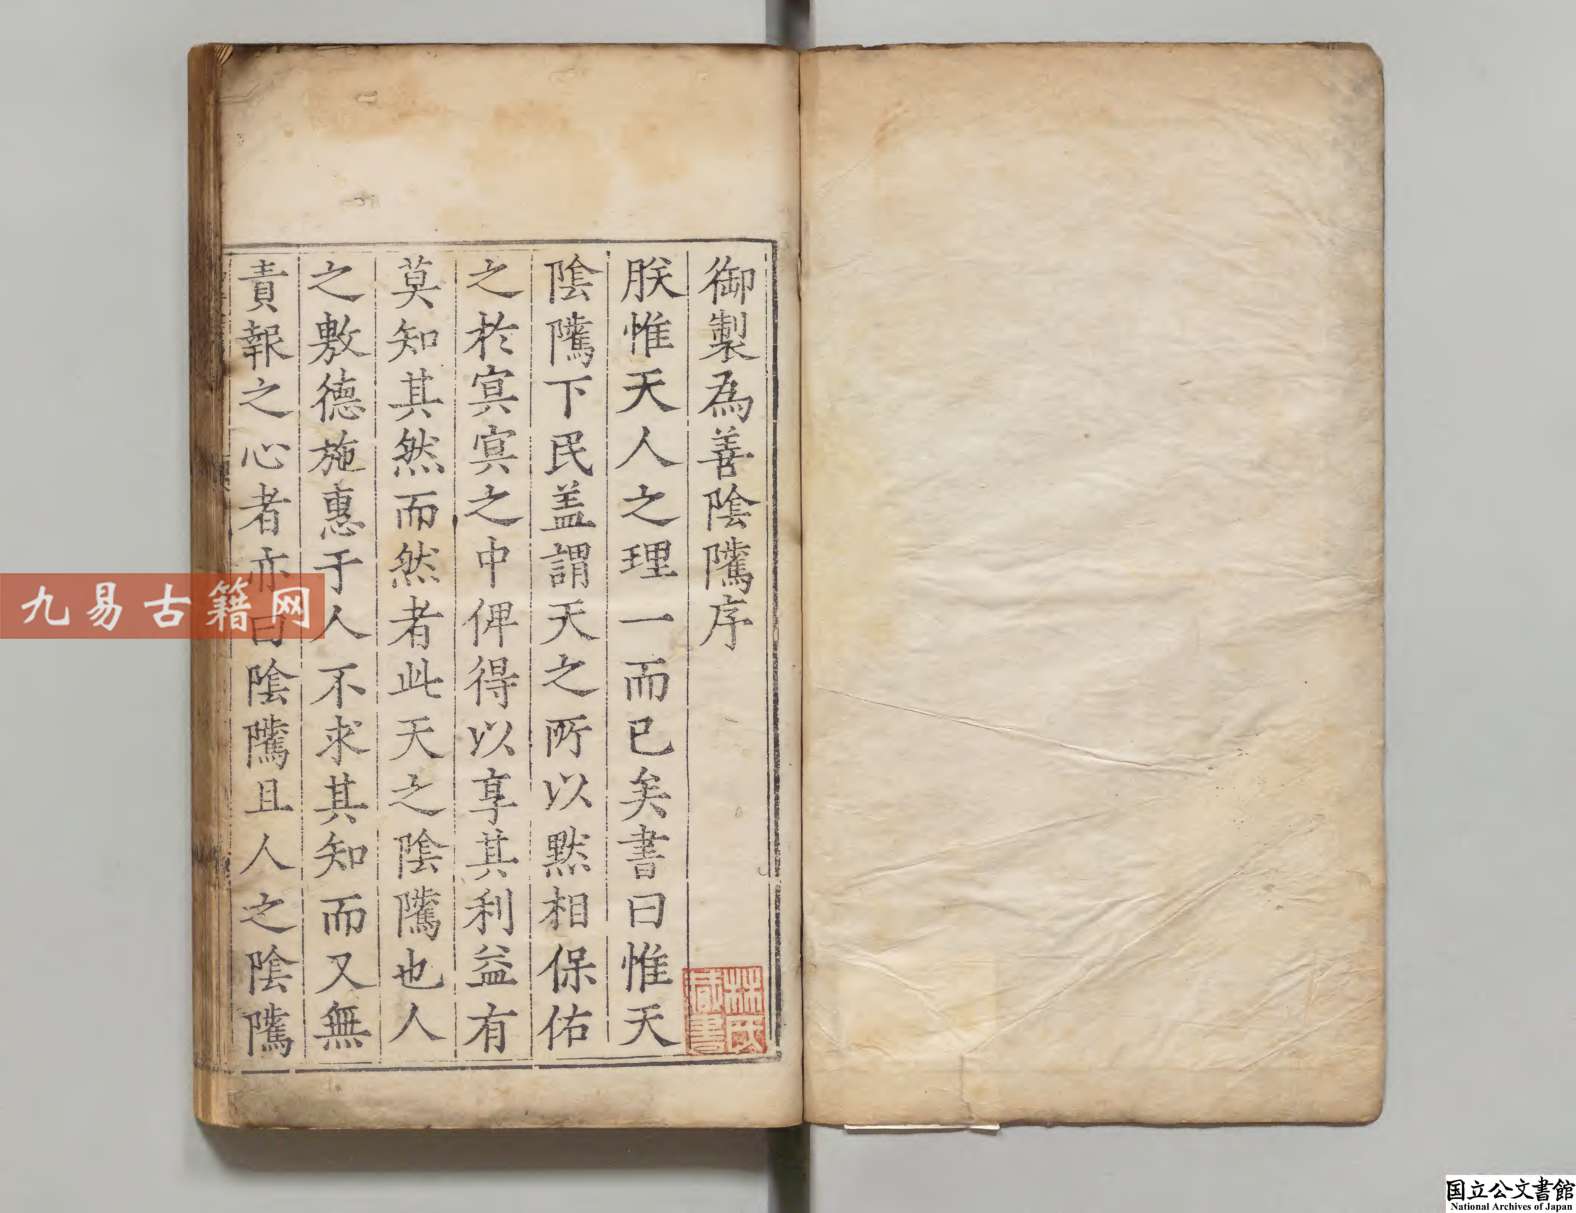 御製為善陰隲序
朕惟天人之理一而已矣書曰惟天
陰隲下民盖謂天之所以默相保佑
之於冥冥之中俾得以享其利益有
莫知其然而然者此天之陰隲也人
之敷德施惠于人不求其知而又無
責報之心者亦曰陰隲且人之陰隲
林氏
藏書
九易古籍网
国立公文書館
National Archives of Japan